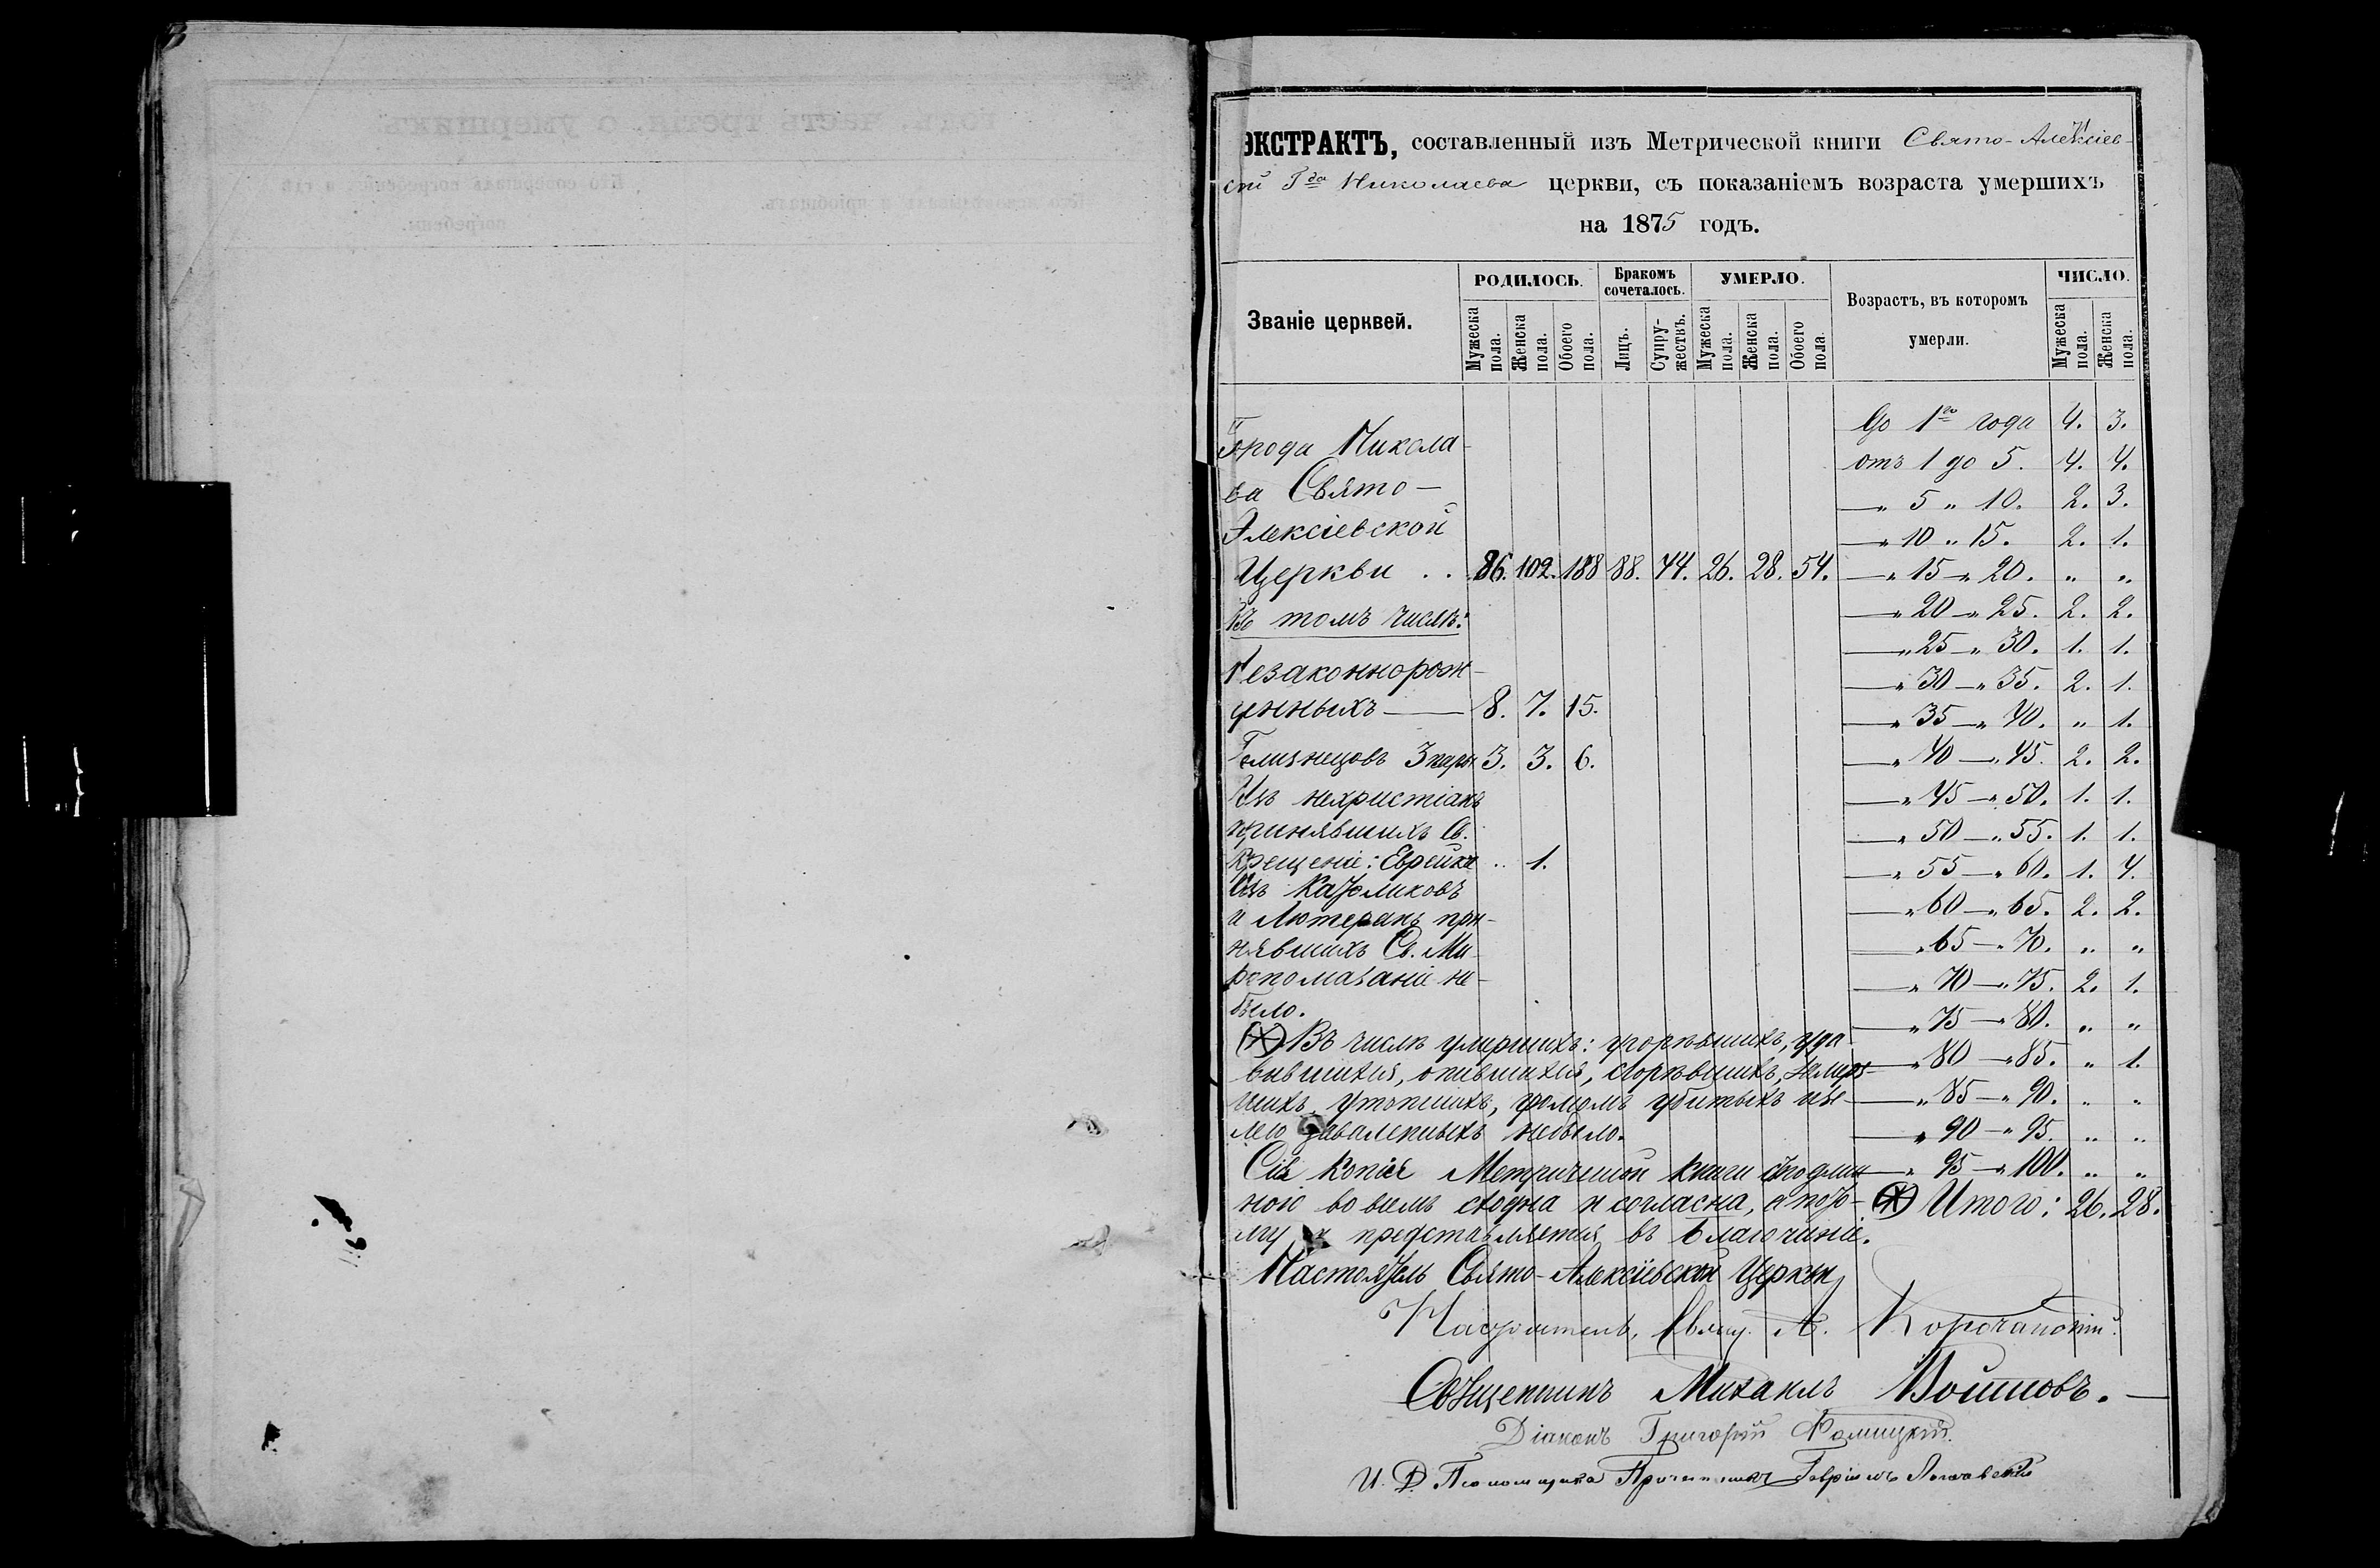 ЭКСТРАКТЪ, составленный изъ Метрической книги Свято-Алексіев-
ской Гда Николаева церкви, съ показаніемъ возраста умершихъ
на 1875 годъ.
Званіе церквей.
РОДИЛОСЬ.
Бракомъ сочеталось.
УМЕРЛО.
Возрастъ, въ которомъ умерли.
ЧИСЛО.
Мужеска пола.
Женска пола.
Обоего пола.
Лицъ.
Супружествъ.
Мужеска пола.
Женска пола.
Обоего пола.
Мужеска пола.
Женска пола.
Города Никола-
ева Свято-
Алексіевской
Церкви . . 86. 102. 188 88. 44. 26. 28. 54.
Въ томъ числѣ:
Незаконнорож-
денныхъ — 8. 7. 15.
Близнецовъ 3 пары 3. 3. 6.
Изъ нехристіанъ
принявшихъ Св.
крещеніе: Еврейка .. 1.
Изъ Католиковъ
и Лютеранъ при-
нявшихъ Св. Ми-
ропомазаніе не-
было.
До 1го года 4. 3.
отъ 1 до 5. 4. 4.
— „ 5 „ 10. 2. 3.
— „ 10 „ 15. 2. 1.
— „ 15 — „ 20. „ „
— „ 20 — „ 25. 2. 2.
— „ 25 — „ 30. 1. 1.
— „ 30 — „ 35. 2. 1.
— „ 35 — „ 40. „ 1.
— „ 40 — „ 45. 2. 2.
— „ 45 — „ 50. 1. 1.
— „ 50 — „ 55. 1. 1.
— „ 55 — „ 60. 1. 4.
— „ 60 — „ 65. 2. 2.
— „ 65 — „ 70. „ „
— „ 70 — „ 75. 2. 1.
— „ 75 — „ 80. „ „
— „ 80 — „ 85. „ 1.
— „ 85 — „ 90. „ „
— „ 90 — „ 95. „ „
— „ 95 — „ 100. „ „
(*) Итого: 26. 28.
(*) Въ числѣ умершихъ: угорѣвшихъ, уда-
вившихся, опившихся, сгорѣвшихъ, замерз-
шихъ, утопшихъ, громомъ убитыхъ и зе-
млею заваленныхъ небыло.
Сія копія Метрической книги съ подлин-
ною во всемъ сходна и согласна, а пото-
му и представляется въ Благочиніе.
Настоятель Свято-Алексіевской Церкви
Настоятель, Свящ. А. Корочанскій.
Священникъ Михаилъ Войновъ. —
Діаконъ Григорій
И. Д. Псаломщика Гавріилъ